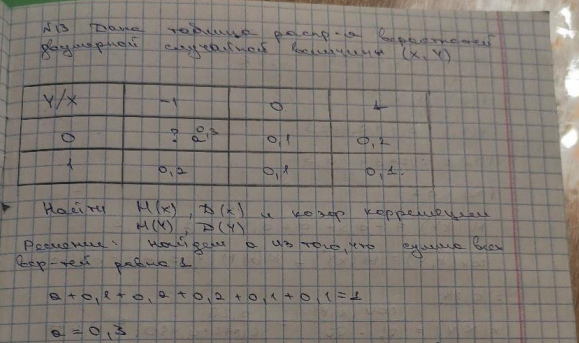 №13 Дана таблица распр-я вероятностей
двумерной случайной величины (X, Y)
Y/X -1 0 1
0 ? a 0,3 0,1 0,2
1 0,2 0,1 0,1
Найти M(x), D(x) и коэф корреляции
M(Y), D(Y)
Решение: найдем a из того, что сумма всех
вер-тей равна 1
a + 0,1 + 0,2 + 0,2 + 0,1 + 0,1 = 1
a = 0,3